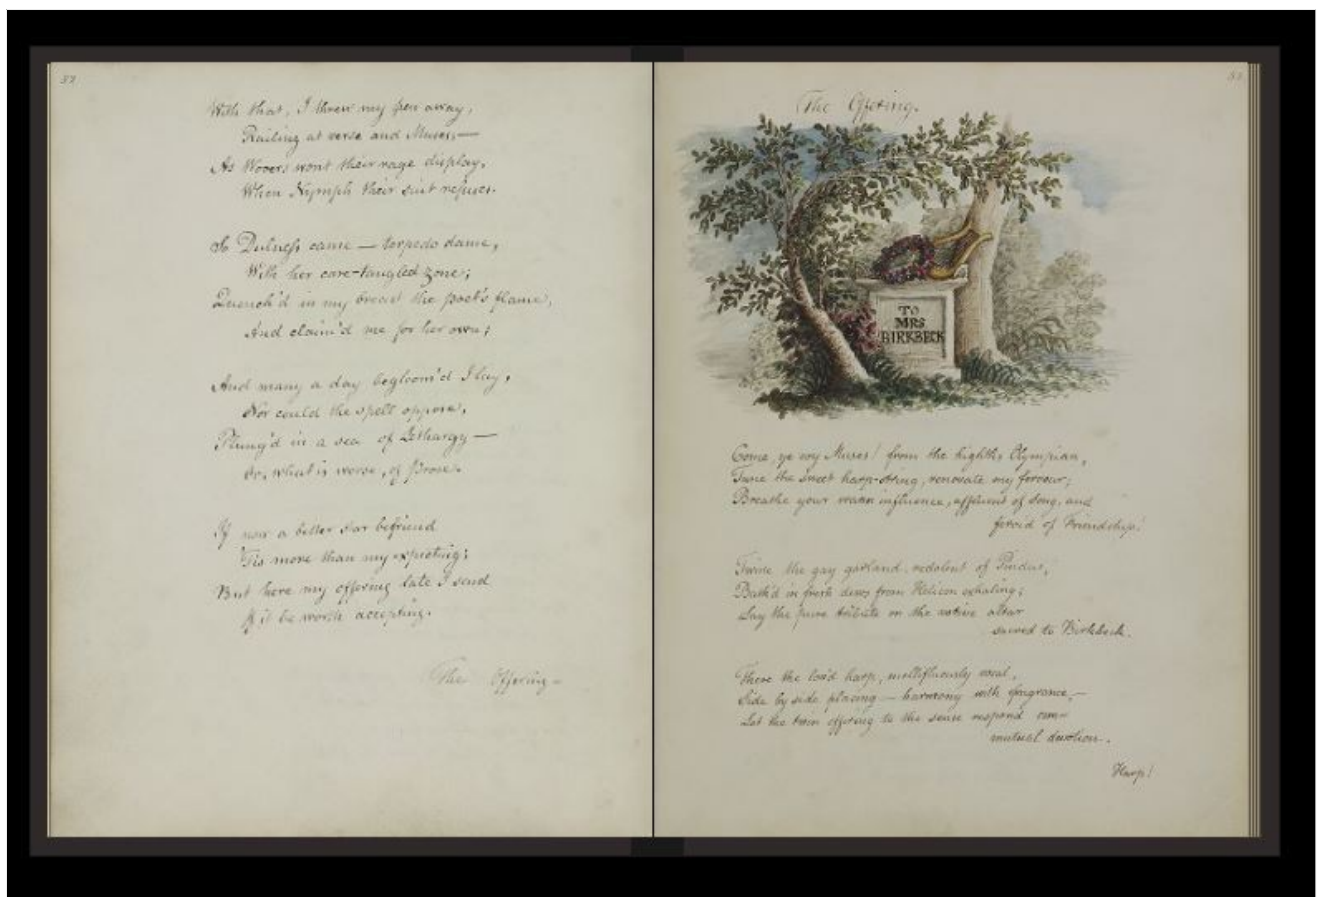 32
With that, I threw my pen away,
Railing at verse and Muses,—
As Wooers wont their rage display,
When Nymph their suit refuses.
So Dulness came — torpedo dame,
With her care-tangled zone;
Quench'd in my breast the poet's flame,
And claim'd me for her own;
And many a day begloom'd I lay,
Nor could the spell oppose,
Plung'd in a sea of Lethargy —
Or, what is worse, of Prose.
If now a better star befriend
'Tis more than my expecting;
But here my offering late I send
If it be worth accepting.
The Offering —
The Offering.
TO
MRS
BIRKBECK
Come, ye coy Muses! from the heights Olympian,
Tune the sweet harp-string, renovate my fervour;
Breathe your warm influence, effluent of song, and
fervid of Friendship!
Twine the gay garland, redolent of Pindus,
Bath'd in fresh dews from Helicon exhaling;
Lay the pure tribute on the votive altar
sacred to Birkbeck.
There the lov'd harp, mellifluously vocal,
Side by side placing — harmony with fragrance,—
Let the twin offering to the sense respond our
mutual devotion.
Harp!